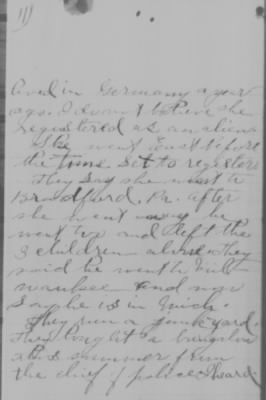 111)
lived in Germany a year
ago. I don't believe she
registered as an alien.
She went East before
the time set to register
They say she went to
Bradford, Pa. after
she went away he
went too and left the
3 children alone. They
said he went to Mil-
waukee and now
say he is in Mich.
They run a junk yard.
They bought a bungalow
this summer from
the chief of police I heard.